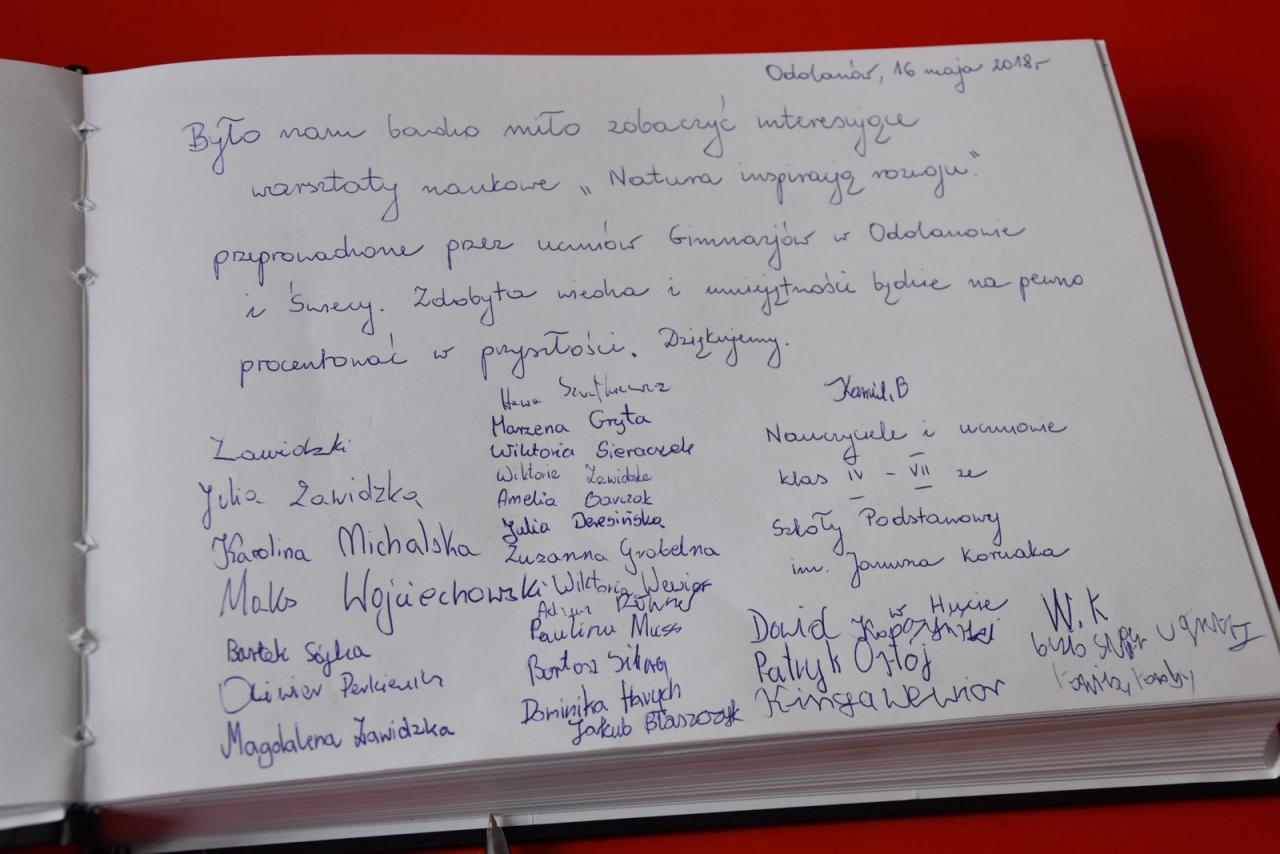 Odolanów, 16 maja 2018r
Było nam bardzo miło zobaczyć interesujące
warsztaty naukowe „Natura inspiracją rozwoju."
przeprowadzone przez uczniów Gimnazjów w Odolanowie
i Świecy. Zdobyta wiedza i umiejętności będzie na pewno
procentować w przyszłości. Dziękujemy.
Zawidzki
Julia Zawidzka
Karolina Michalska
Maks Wojciechowski
Bartek
Oliwier
Magdalena Zawidzka
Marzena Gryta
Wiktoria Sieraczek
Wiktoria Zawidzka
Amelia Garczak
Julia Deresińska
Zuzanna Grobelna
Wiktoria Wewior
Paulina Muss
Bartosz Sikora
Dominika
Jakub Błaszczyk
Kamil.B
Nauczyciele i uczniowie
klas IV - VII ze
Szkoły Podstawowej
im. Janusza Korczaka
w Hucie
Dawid
Patryk Ostój
Kinga Wewior
W.K
było super